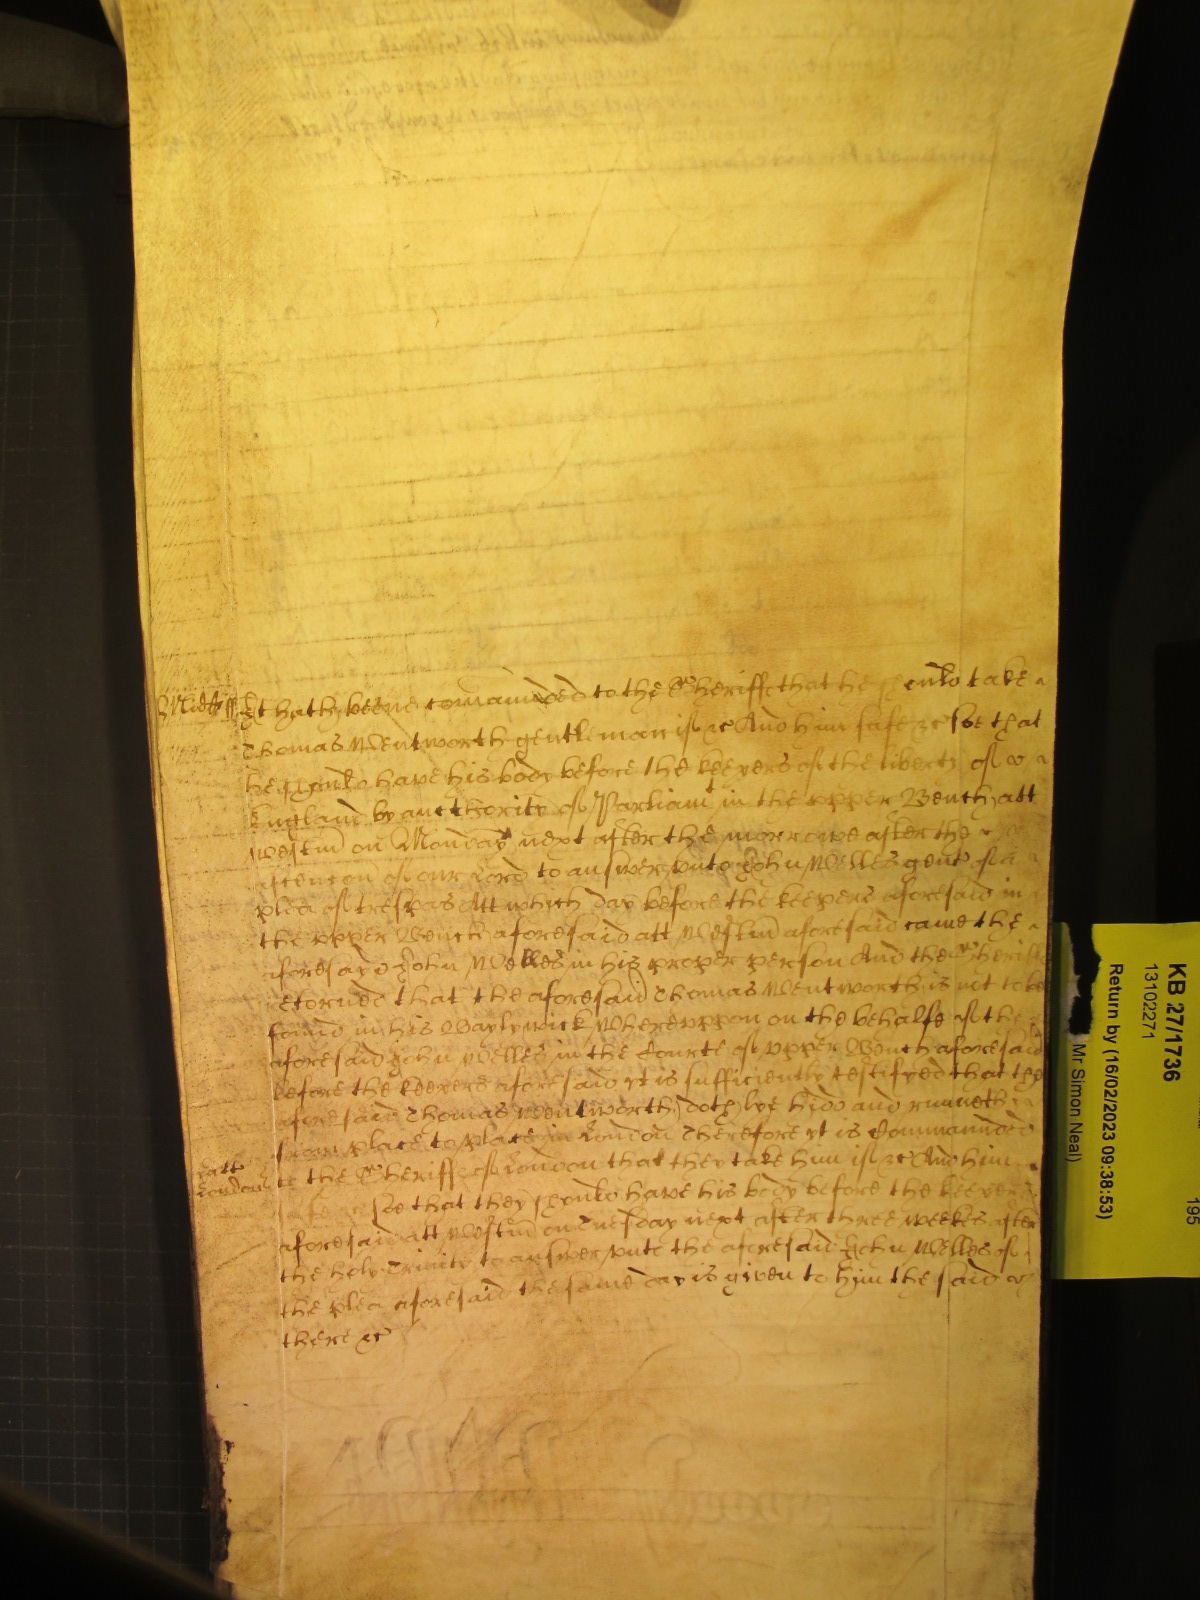 Midd ss It hath beene comanded to the Sheriffe that he should take
Thomas Wentworth gentleman if &c And him safe &c Soe that
he should have his body before the keepers of the liberty of
England by aucthority of Parliamt in the upper Bench att
Westm on Monday next after the morrowe after the
Ascencon of our Lord to answer unto John Welles gent of a
plea of trespas Att which day before the keepers aforesaid in
the upper Bench aforesaid att Westm aforesaid came the
aforesayd John Welles in his proper person And the Sheriffe
retorned that the aforesaid Thomas Wentworth is not to be
found in his Baylywick Whereuppon on the behalfe of the
aforesaid John Welles in the Courte of upper Bench aforesaid
before the keepers aforesaid yt is sufficiently testifyed that the
aforesaid Thomas Wentworth doth lye hidd and runneth
from place to place in London Therefore yt is Commaunded
latt London to the Sheriffe of London that they take him if &c And him
safe &c Soe that they should have his body before the keepers
aforesaid att Westm on Tuesday next after three weekes after
the holy Trinity to answer unto the aforesaid John Welles of
the plea aforesaid the same day is given to him the said
there &c
KB 27/1736
13102271
Return by (16/02/2023 09:38:53)
Mr Simon Neal)
195